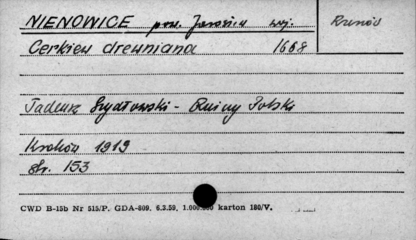 NIENOWICE pow. Jarosław woj. Rzeszów
Cerkiew drewniana 1668
Tadeusz Szydłowski - Ruiny Polski
Kraków 1919
str. 153
CWD B-15b Nr 515/P. GDA-809. 6.3.59, 1.000.000 karton 180/V.